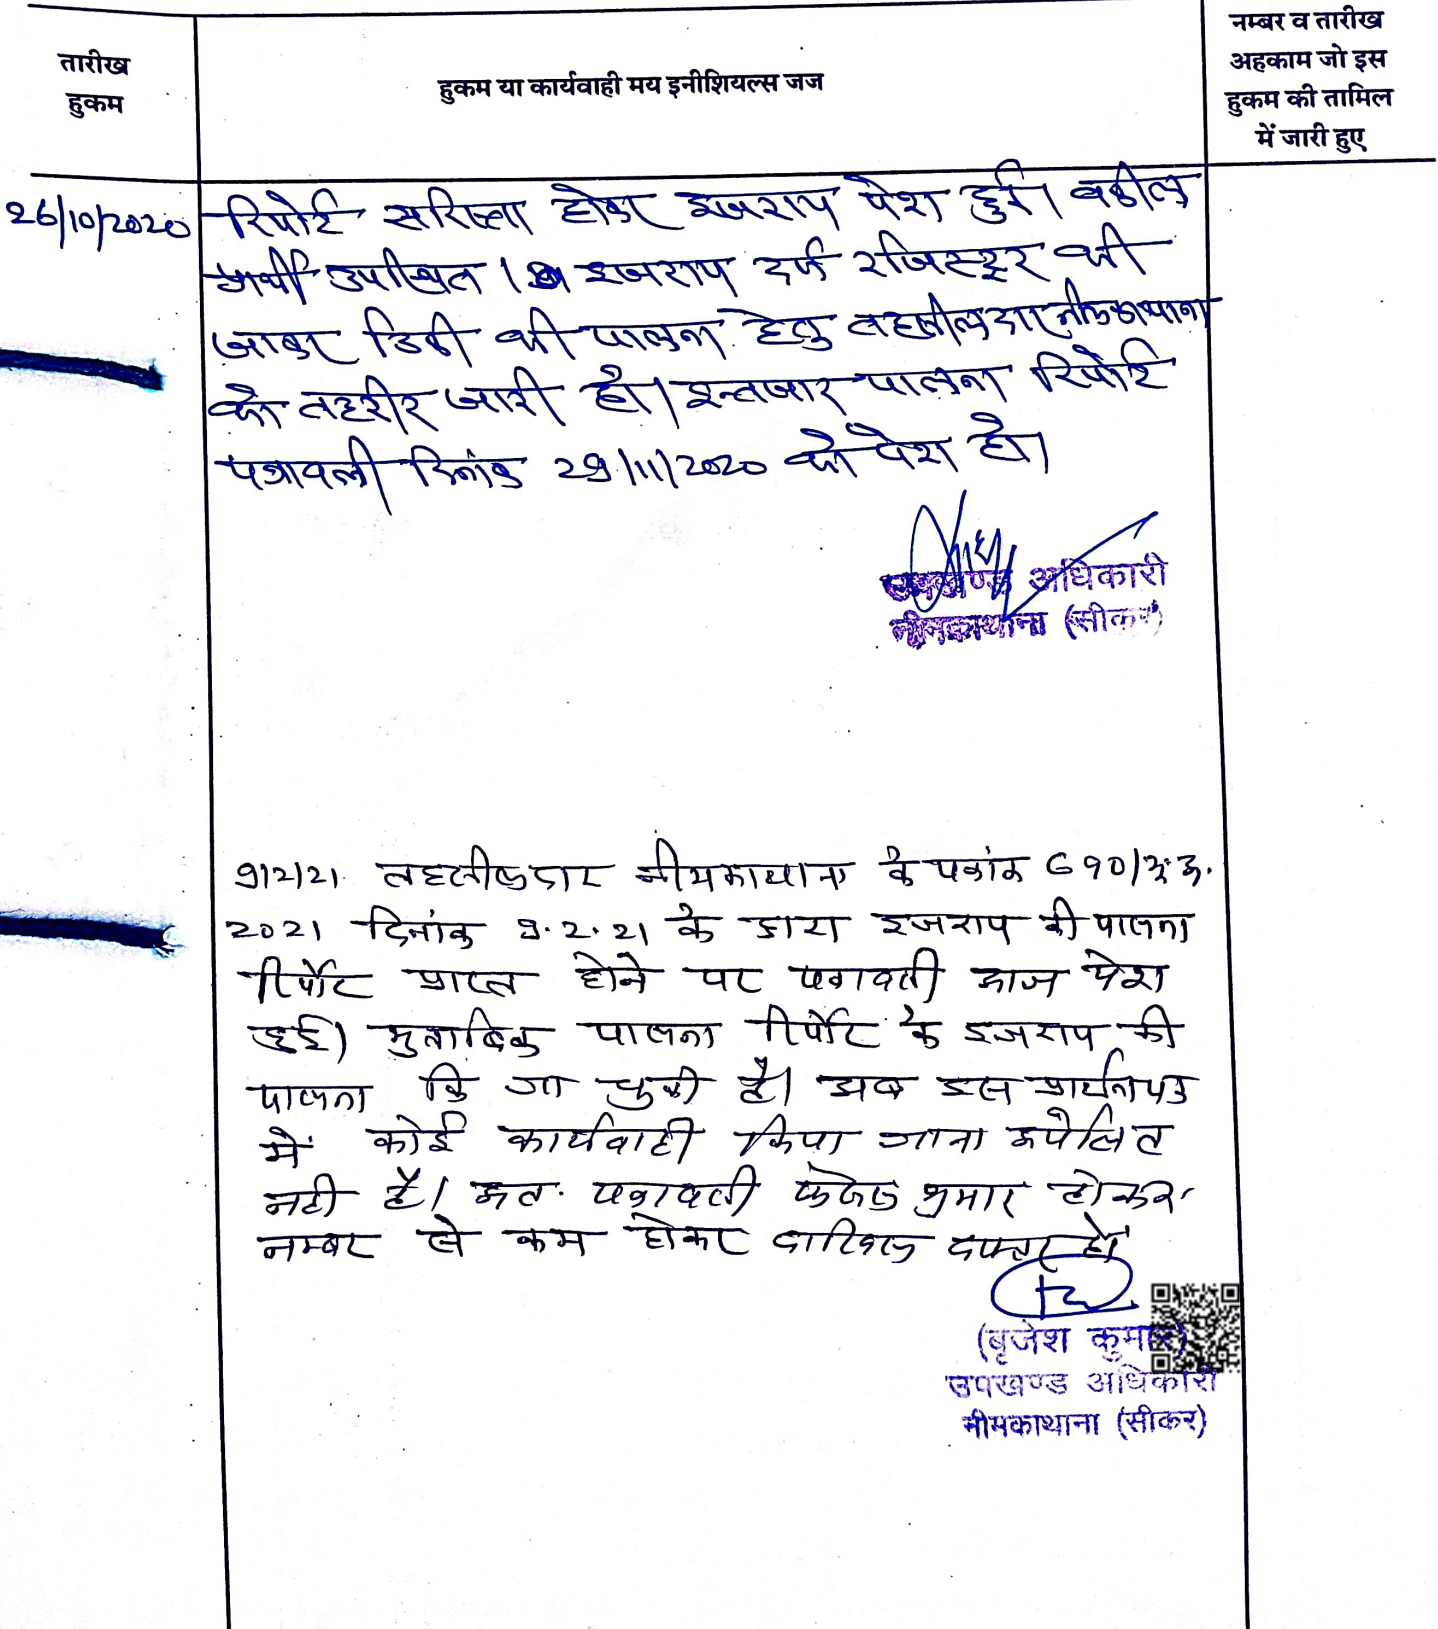 तारीख
हुकम
हुकम या कार्यवाही मय इनीशियल्स जज
नम्बर व तारीख
अहकाम जो इस
हुकम की तामिल
में जारी हुए
26/10/2020 रिपोर्ट सरिस्ता होकर इजराय पेश हुई। वकील
प्रार्थी उपस्थित। इजराय दर्ज रजिस्टर की
जाकर डिक्री की पालना हेतु तहसीलदार नीमकाथाना
को तहरीर जारी हो। इन्तजार पालना रिपोर्ट
पत्रावली दिनांक 29/11/2020 को पेश हो।
उपखण्ड अधिकारी
नीमकाथाना (सीकर)
9/2/21. तहसीलदार नीमकाथाना के पत्रांक 690/
2021 दिनांक 9.2.21 के द्वारा इजराय की पालना
रिर्पोट प्राप्त होने पर पत्रावली आज पेश
हुई। मुताबिक पालना रिर्पोट के इजराय की
पालना कि जा चुकी है। अब इस प्रार्थनापत्र
में कोई कार्यवाही किया जाना अपेक्षित
नही है। अतः पत्रावली फैसल शुमार होकर
नम्बर से कम होकर दाखिल दफ्तर हो
(बृजेश कुमार)
उपखण्ड अधिकारी
नीमकाथाना (सीकर)